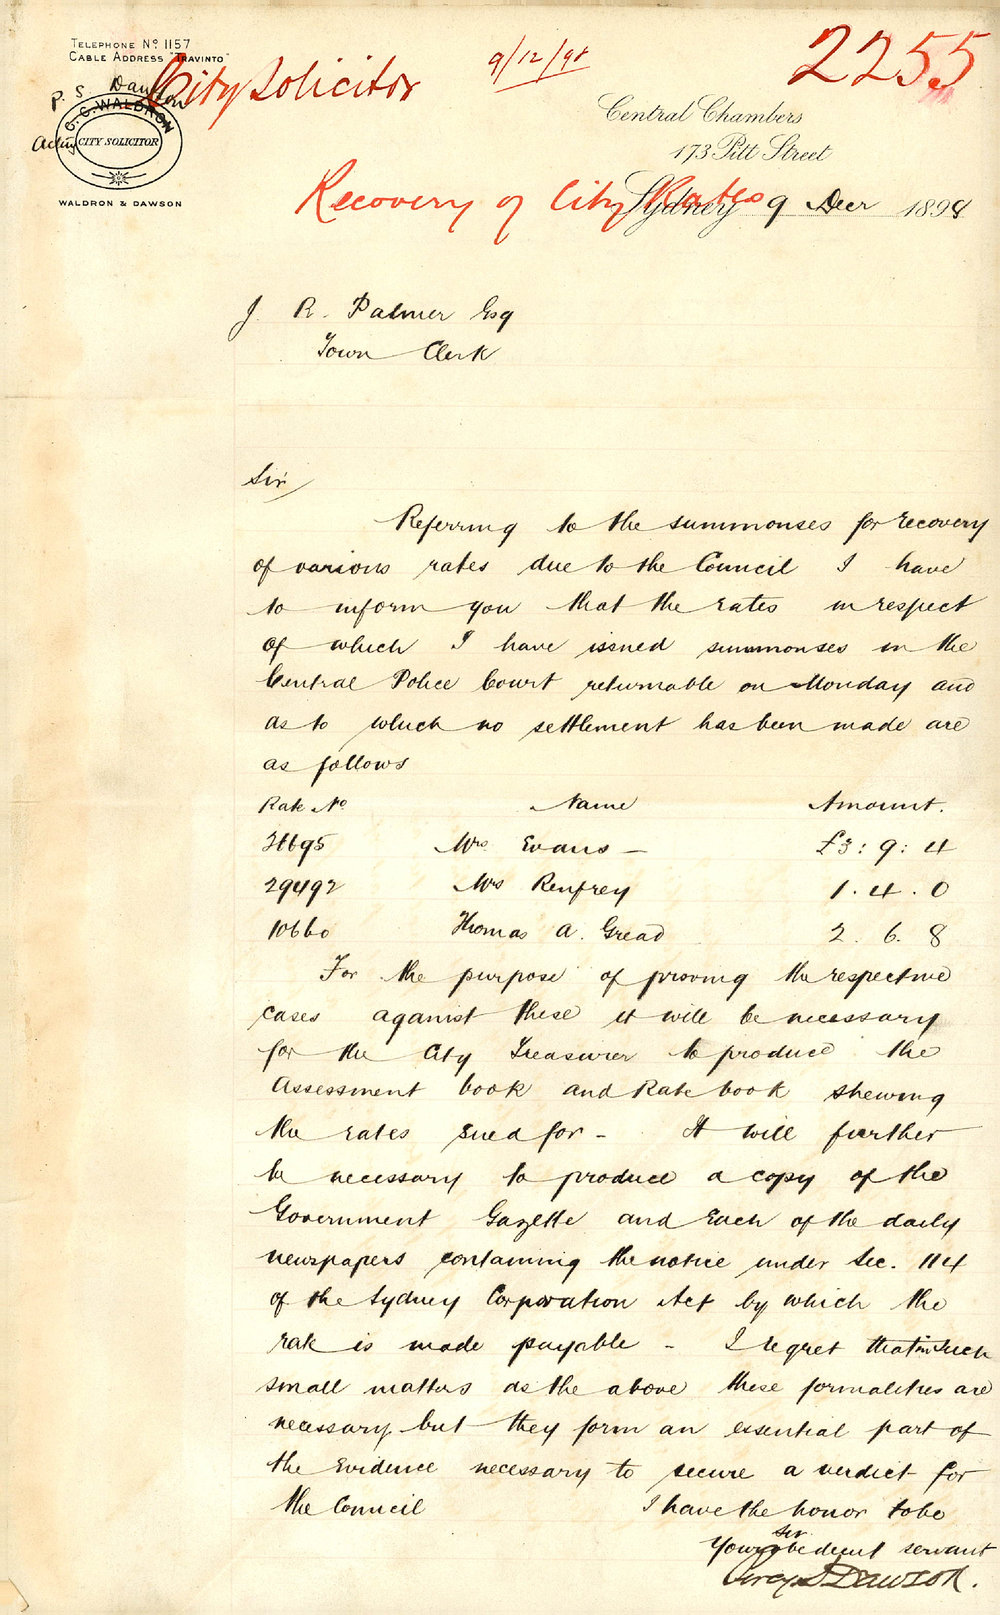 TELEPHONE Nº 1157
CABLE ADDRESS "TRAVINTO"
City Solicitor
9/12/98
2255
P. S. Dawson
C. C. WALDRON
Acting
CITY SOLICITOR
WALDRON & DAWSON
Central Chambers
173 Pitt Street
Recovery of City Rates
Sydney 9 Decr 1898
J. R. Palmer Esq
Town Clerk
Sir
Referring to the summonses for recovery
of various rates due to the Council I have
to inform you that the rates in respect
of which I have issued summonses in the
Central Police Court returnable on Monday and
as to which no settlement has been made are
as follows
Rate No Name Amount.
Mrs. Evans — £3 : 9 : 4
29492 Mrs Renfrey 1 . 4 . 0
10660 Thomas A. Gread 2 . 6 . 8
For the purpose of proving the respective
cases against these it will be necessary
for the City Treasurer to produce the
Assessment book and Rate book shewing
the rates sued for - It will further
be necessary to produce a copy of the
Government Gazette and each of the daily
newspapers containing the notice under Sec. 114
of the Sydney Corporation Act by which the
rate is made payable - I regret that in such
small matters as the above these formalities are
necessary but they form an essential part of
the evidence necessary to secure a verdict for
the Council I have the honor to be
Sir
Your obedient servant
Percy S Dawson.